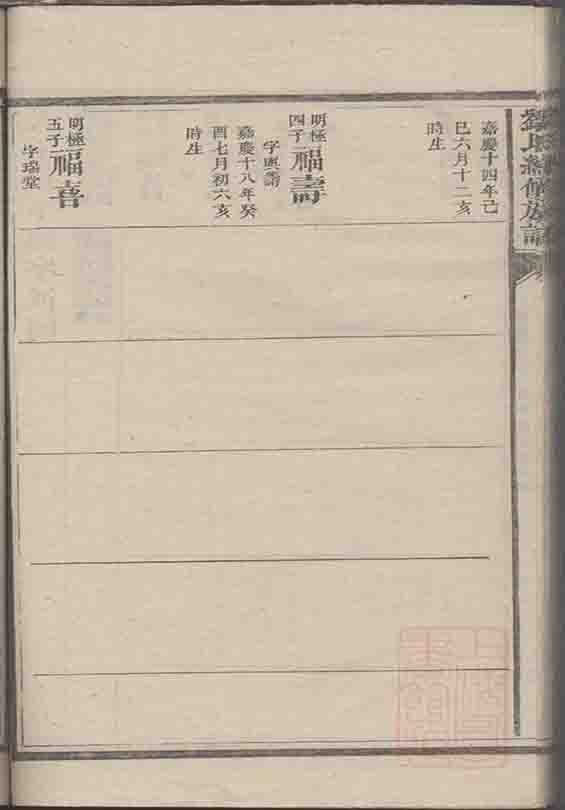 氏續修族譜
嘉慶十四年己
巳六月十二亥
時生
明極
四子
福壽
嘉慶十八年癸
酉七月初六亥
時生
明極
五子
福喜
字瑞堂